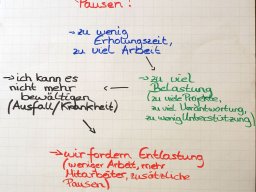 Pausen:
→ zu wenig
Erholungszeit,
zu viel Arbeit
→ ich kann es
nicht mehr
bewältigen
(Ausfall/Krankheit)
zu viel
Belastung
(zu viele Projekte,
zu viel Verantwortung,
zu wenig Unterstützung)
→ wir fordern Entlastung
(weniger Arbeit, mehr
Mitarbeiter, zusätzliche
Pausen)